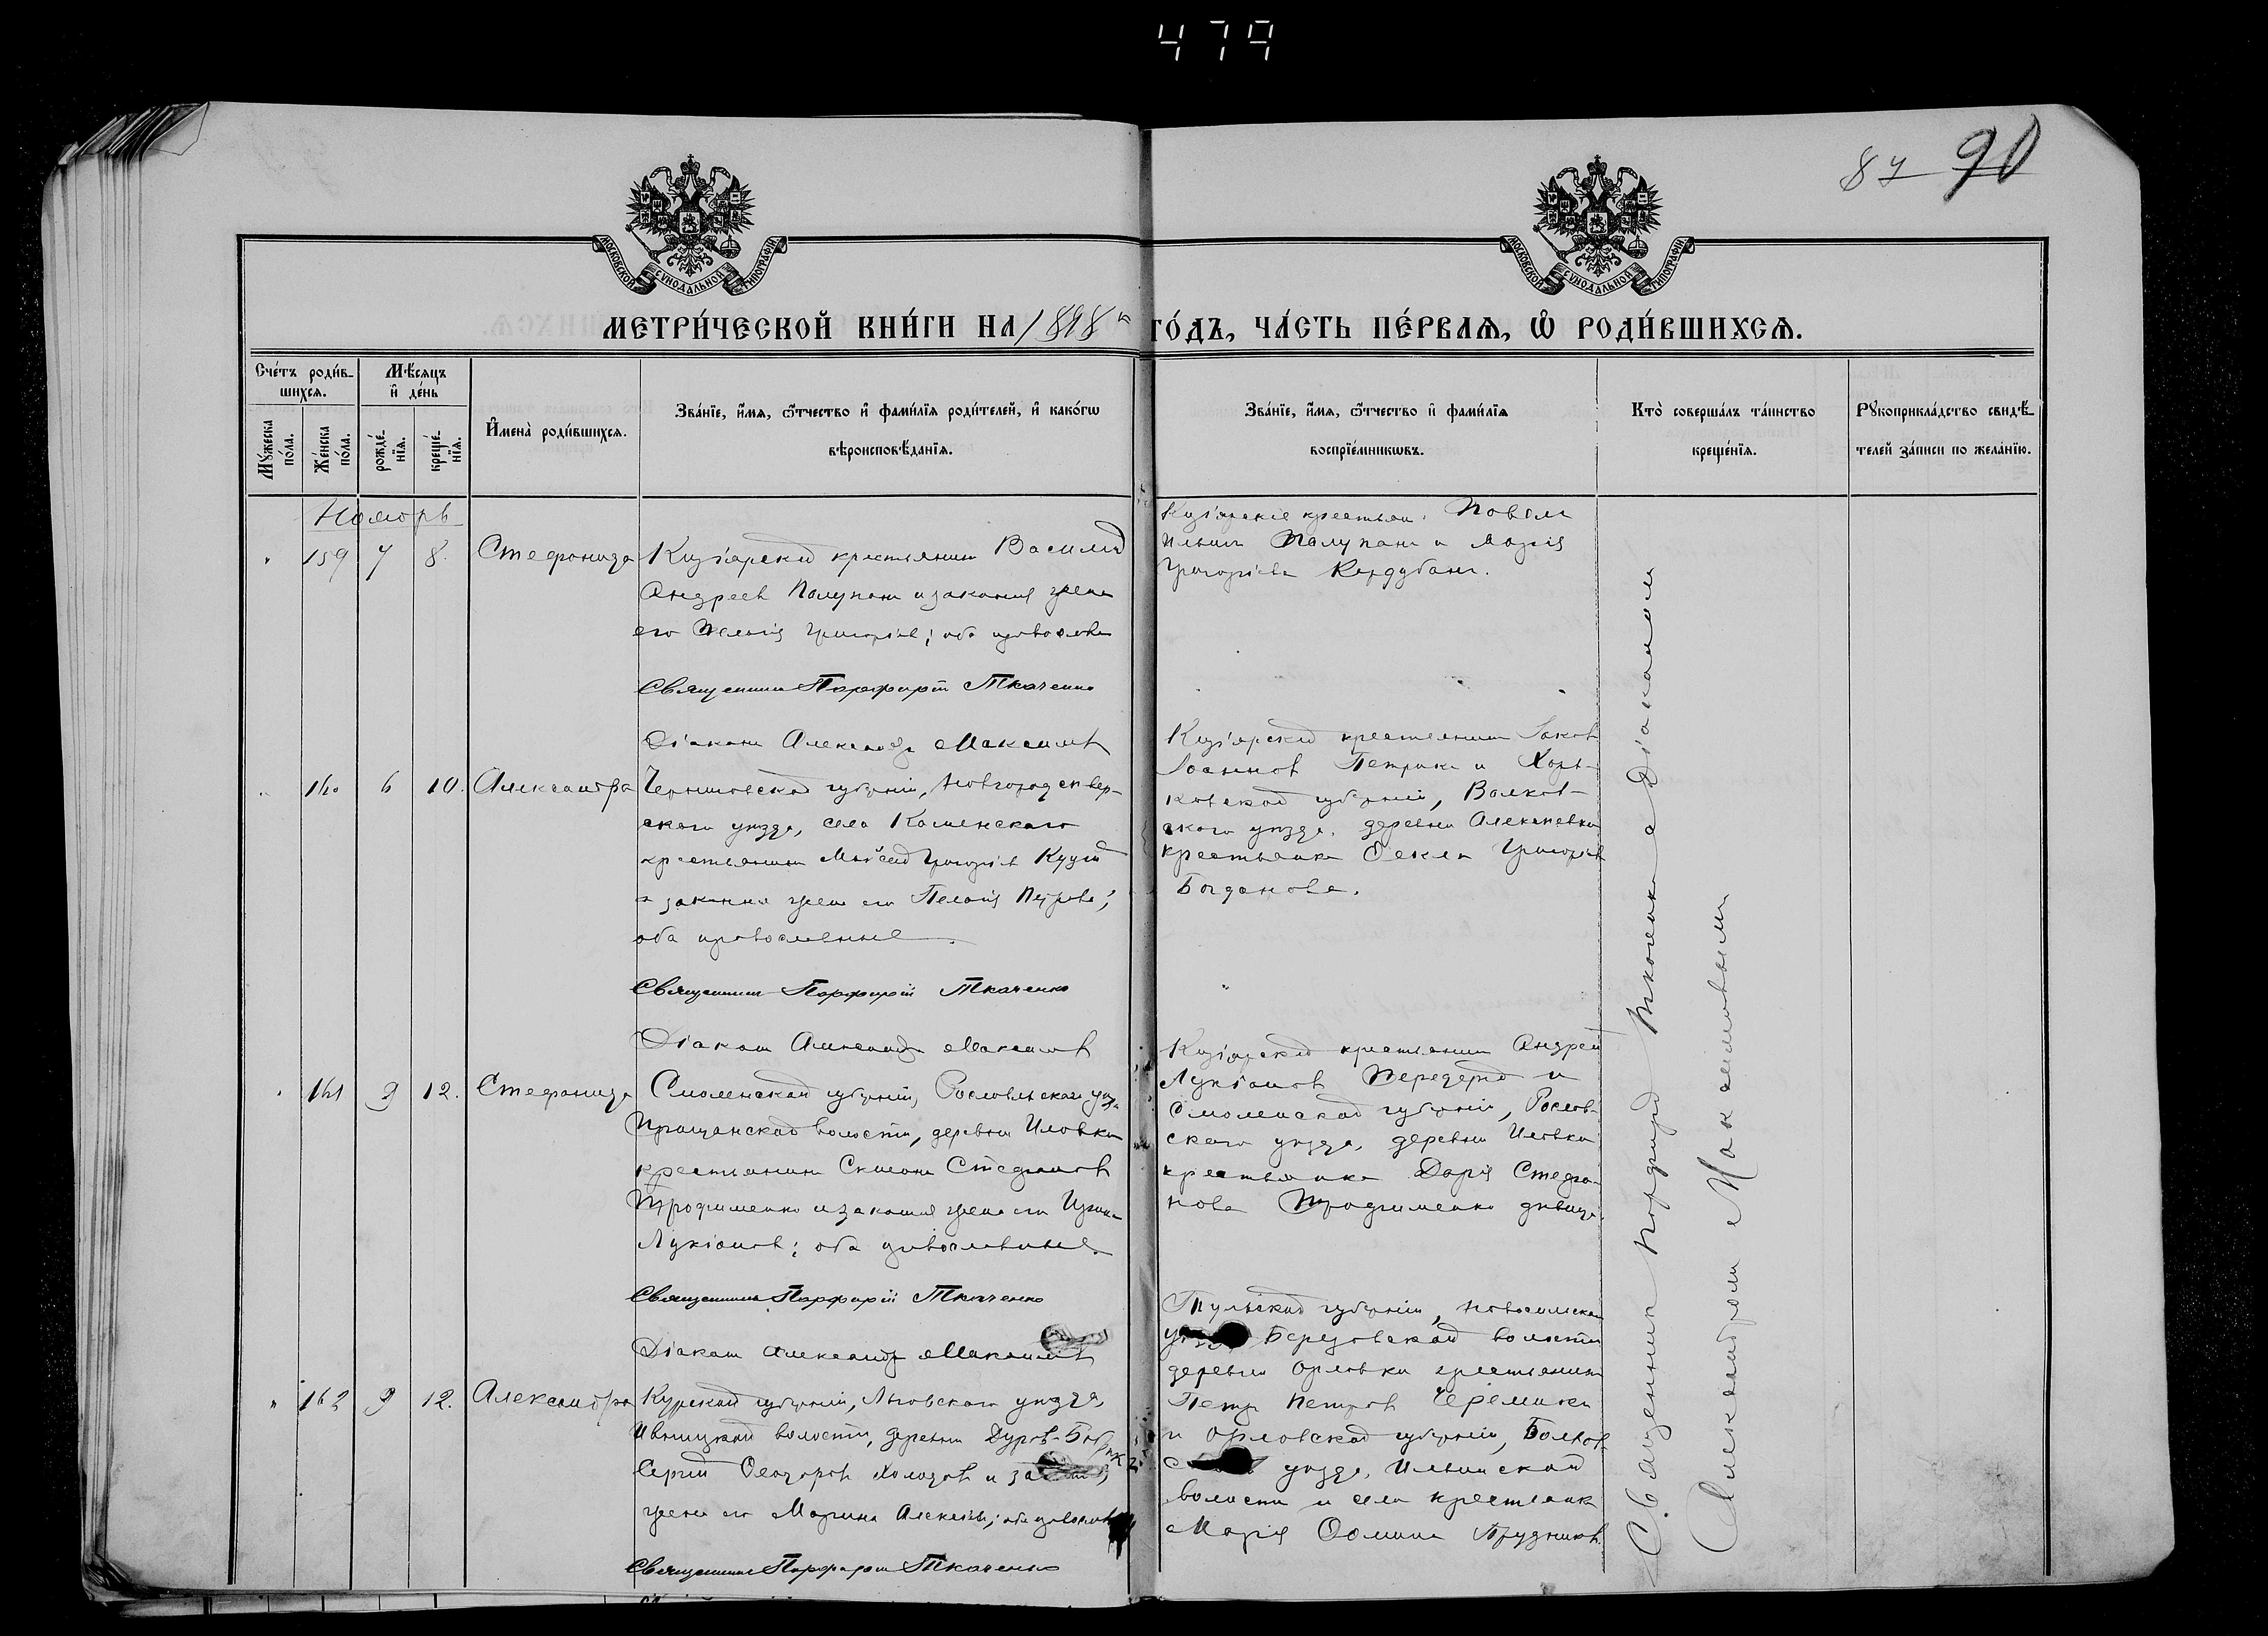 479
87 90
МОСКОВСКОЙ СѴНОДАЛЬНОЙ ТИПОГРАФІИ
МОСКОВСКОЙ СѴНОДАЛЬНОЙ ТИПОГРАФІИ
МЕТРИ́ЧЕСКОЙ КНИ́ГИ НА 1898 ГО́ДЪ, ЧА́СТЬ ПЕ́РВАѦ, Ѡ҆ РОДИ́ВШИХСѦ.
Сче́тъ роди́в-
шихсѧ.
Мꙋ́жеска
по́ла.
Же́нска
по́ла.
Мѣ́сѧцъ
и҆ де́нь
рожде́-
нїѧ.
креще́-
нїѧ.
И҆мена̀ роди́вшихсѧ.
Зва́нїе, и҆́мѧ, ѻ҆́тчество и҆ фами́лїѧ роди́телей, и҆ како́гѡ
вѣроисповѣ́данїѧ.
Зва́нїе, и҆́мѧ, ѻ҆́тчество и҆ фами́лїѧ
воспрїе́мникѡвъ.
Кто̀ соверша́лъ та́инство
креще́нїѧ.
Рꙋкоприкла́дство свидѣ́-
телей за́писи по жела́нїю.
Ноябрь
159 7 8. Стефанида
Кизіярскій крестьянинъ Василій
Андреевъ Полупанъ и законная жена
его Пелагія Григоріева; оба православн
Священникъ Порфирій Ткаченко
Діаконъ Александръ Максимовъ
Кизіярскіе крестьян. Павелъ
Ильинъ Полупанъ и Марія
Григоріева Кардубанъ.
160 6 10. Александра
Черниговской губерніи, Новгородсѣвер-
скаго уѣзда, села Каменскаго
крестьянинъ Моисей Григоріевъ
и законная жена его Пелагія Петрова;
оба православные
Священникъ Порфирій Ткаченко
Діаконъ Александръ Максимовъ
Кизіярскій крестьянинъ Іаковъ
Іоанновъ Петрикъ и Харь-
ковской губерніи, Валков-
скаго уѣзда, деревни Алексѣевки
крестьянка Ѳекла Григоріев
Богданова.
161 9 12. Стефанида
Смоленской губерніи, Рославльскаго уѣз.
волости, деревни Иловки
крестьянинъ Стефановъ
Трофименко и законная жена его Ирина
Лукіанова; оба православные.
Священникъ Порфирій Ткаченко
Діаконъ Александръ Максимовъ
Кизіярскій крестьянинъ Андрей
Лукіановъ Передерій и
Смоленской губерніи, Рослав-
скаго уѣзда, деревни Иловки
крестьянка Дарія Стефа-
нова Трофименко дѣвица.
162 9 12. Александра
Курской губерніи, Льговскаго уѣзда,
Ивницкой волости, деревни Дуров-Бобрикъ
Сергій Ѳеодоровъ Холодовъ и законная
жена его Марина Алексіева; оба православ
Священникъ Порфирій Ткаченко
Тульской губерніи, Новосильскаго
уѣзда, Березовской волости
деревни Орловки крестьянинъ
Петръ Петровъ Черемикинъ
и Орловской губерніи, Болхов-
уѣзда, Ильинской
волости и села крестьянка
Марія Ѳомина Прудникова.
Священникъ Порфирій Ткаченко съ Діакономъ
Александромъ Максимовымъ